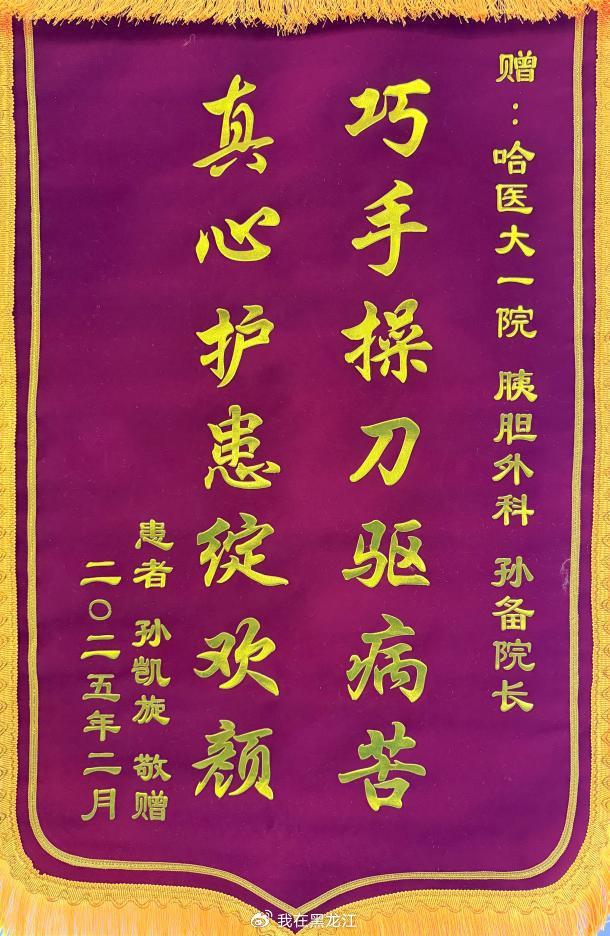 赠：哈医大一院 胰胆外科 孙备院长
巧手操刀驱病苦
真心护患绽欢颜
患者 孙凯旋 敬赠
二〇二五年二月
我在黑龙江